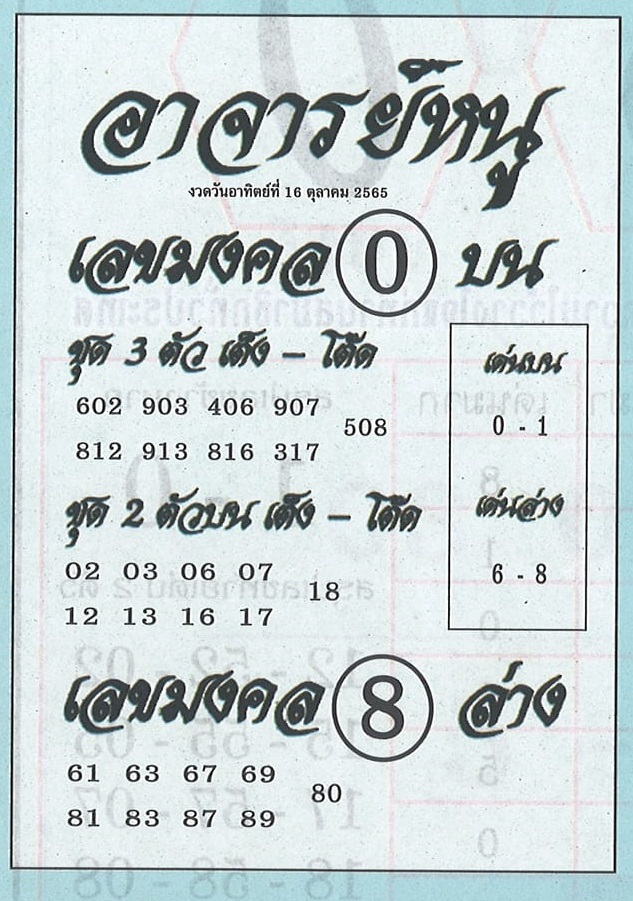 อาจารย์หนู
งวดวันอาทิตย์ที่ 16 ตุลาคม 2565
เลขมงคล 0 บน
ชุด 3 ตัว เต็ง - โต๊ด
602 903 406 907
508
812 913 816 317
เด่นบน
0 - 1
ชุด 2 ตัวบน เต็ง - โต๊ด
02 03 06 07
18
12 13 16 17
เด่นล่าง
6 - 8
เลขมงคล 8 ล่าง
61 63 67 69
80
81 83 87 89